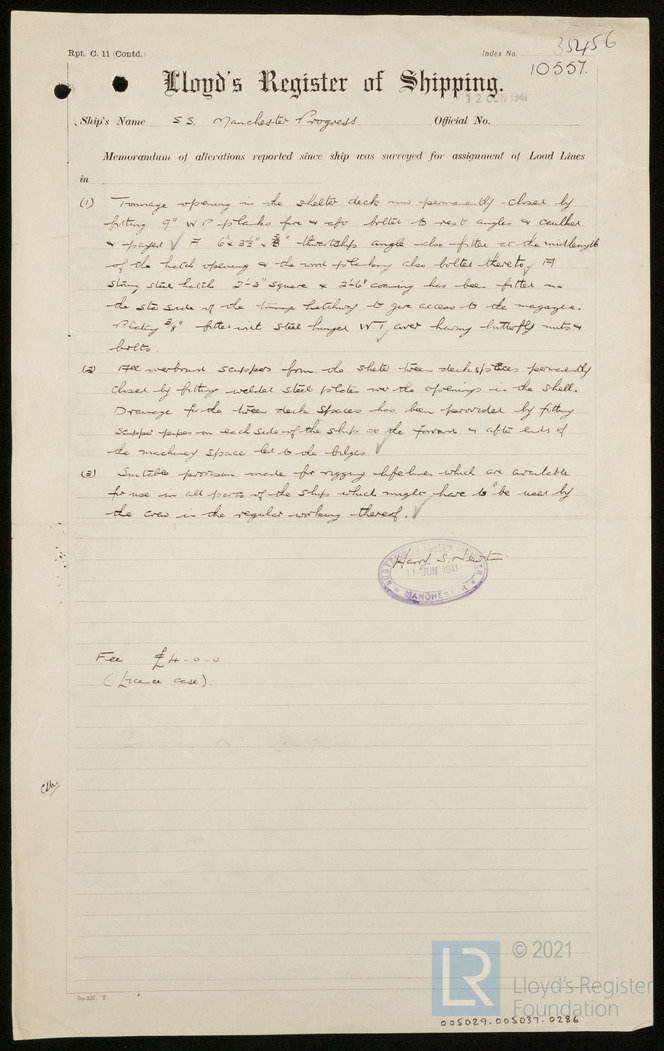 Rpt. C. 11 (Contd.)
Index No. 35456
10557.
Lloyd's Register of Shipping.
12 JUN 1941
Ship's Name S.S. Manchester Progress Official No.
Memorandum of alterations reported since ship was surveyed for assignment of Load Lines
in
(1) Tonnage opening in the shelter deck now permanently closed by
fitting 9" W.P. planks fore & aft bolted to rest angles & caulked
& payed A 6" x 3½" x 3/8" thwartship angle also fitted at the midlength
of the hatch opening & the wood planking also bolted thereto. A
strong steel hatch 2'-3" square x 2'-6" coaming has been fitted on
the side of the tonnage hatchway to give access to the magazine.
Plating 3/8" fitted with steel hinged W.T. cover having butterfly nuts &
bolts.
(2) All overboard scuppers from the shelter 'tween deck spaces permanently
closed by fitting welded steel plates over the openings in the shell.
Drainage for the 'tween deck spaces has been provided by fitting
scupper pipes on each side of the ship at the forward & after ends of
the machinery space led to the bilges.
(3) Suitable provision made for rigging lifelines which are available
for use in all parts of the ship which might have to be used by
the crew in the regular working thereof.
Harry S.
11 JUN 1941
MANCHESTER
Fee £4..0..0
(Licence case).
© 2021
LR
Lloyd's Register
Foundation
005029-005037-0286